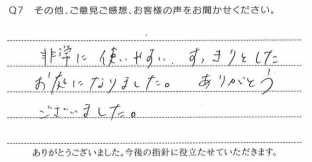 Q7 その他、ご意見ご感想、お客様の声をお聞かせください。
非常に使いやすい、すっきりとした
お家になりました。 ありがとう
ございました。
ありがとうございました。今後の指針に役立たせていただきます。